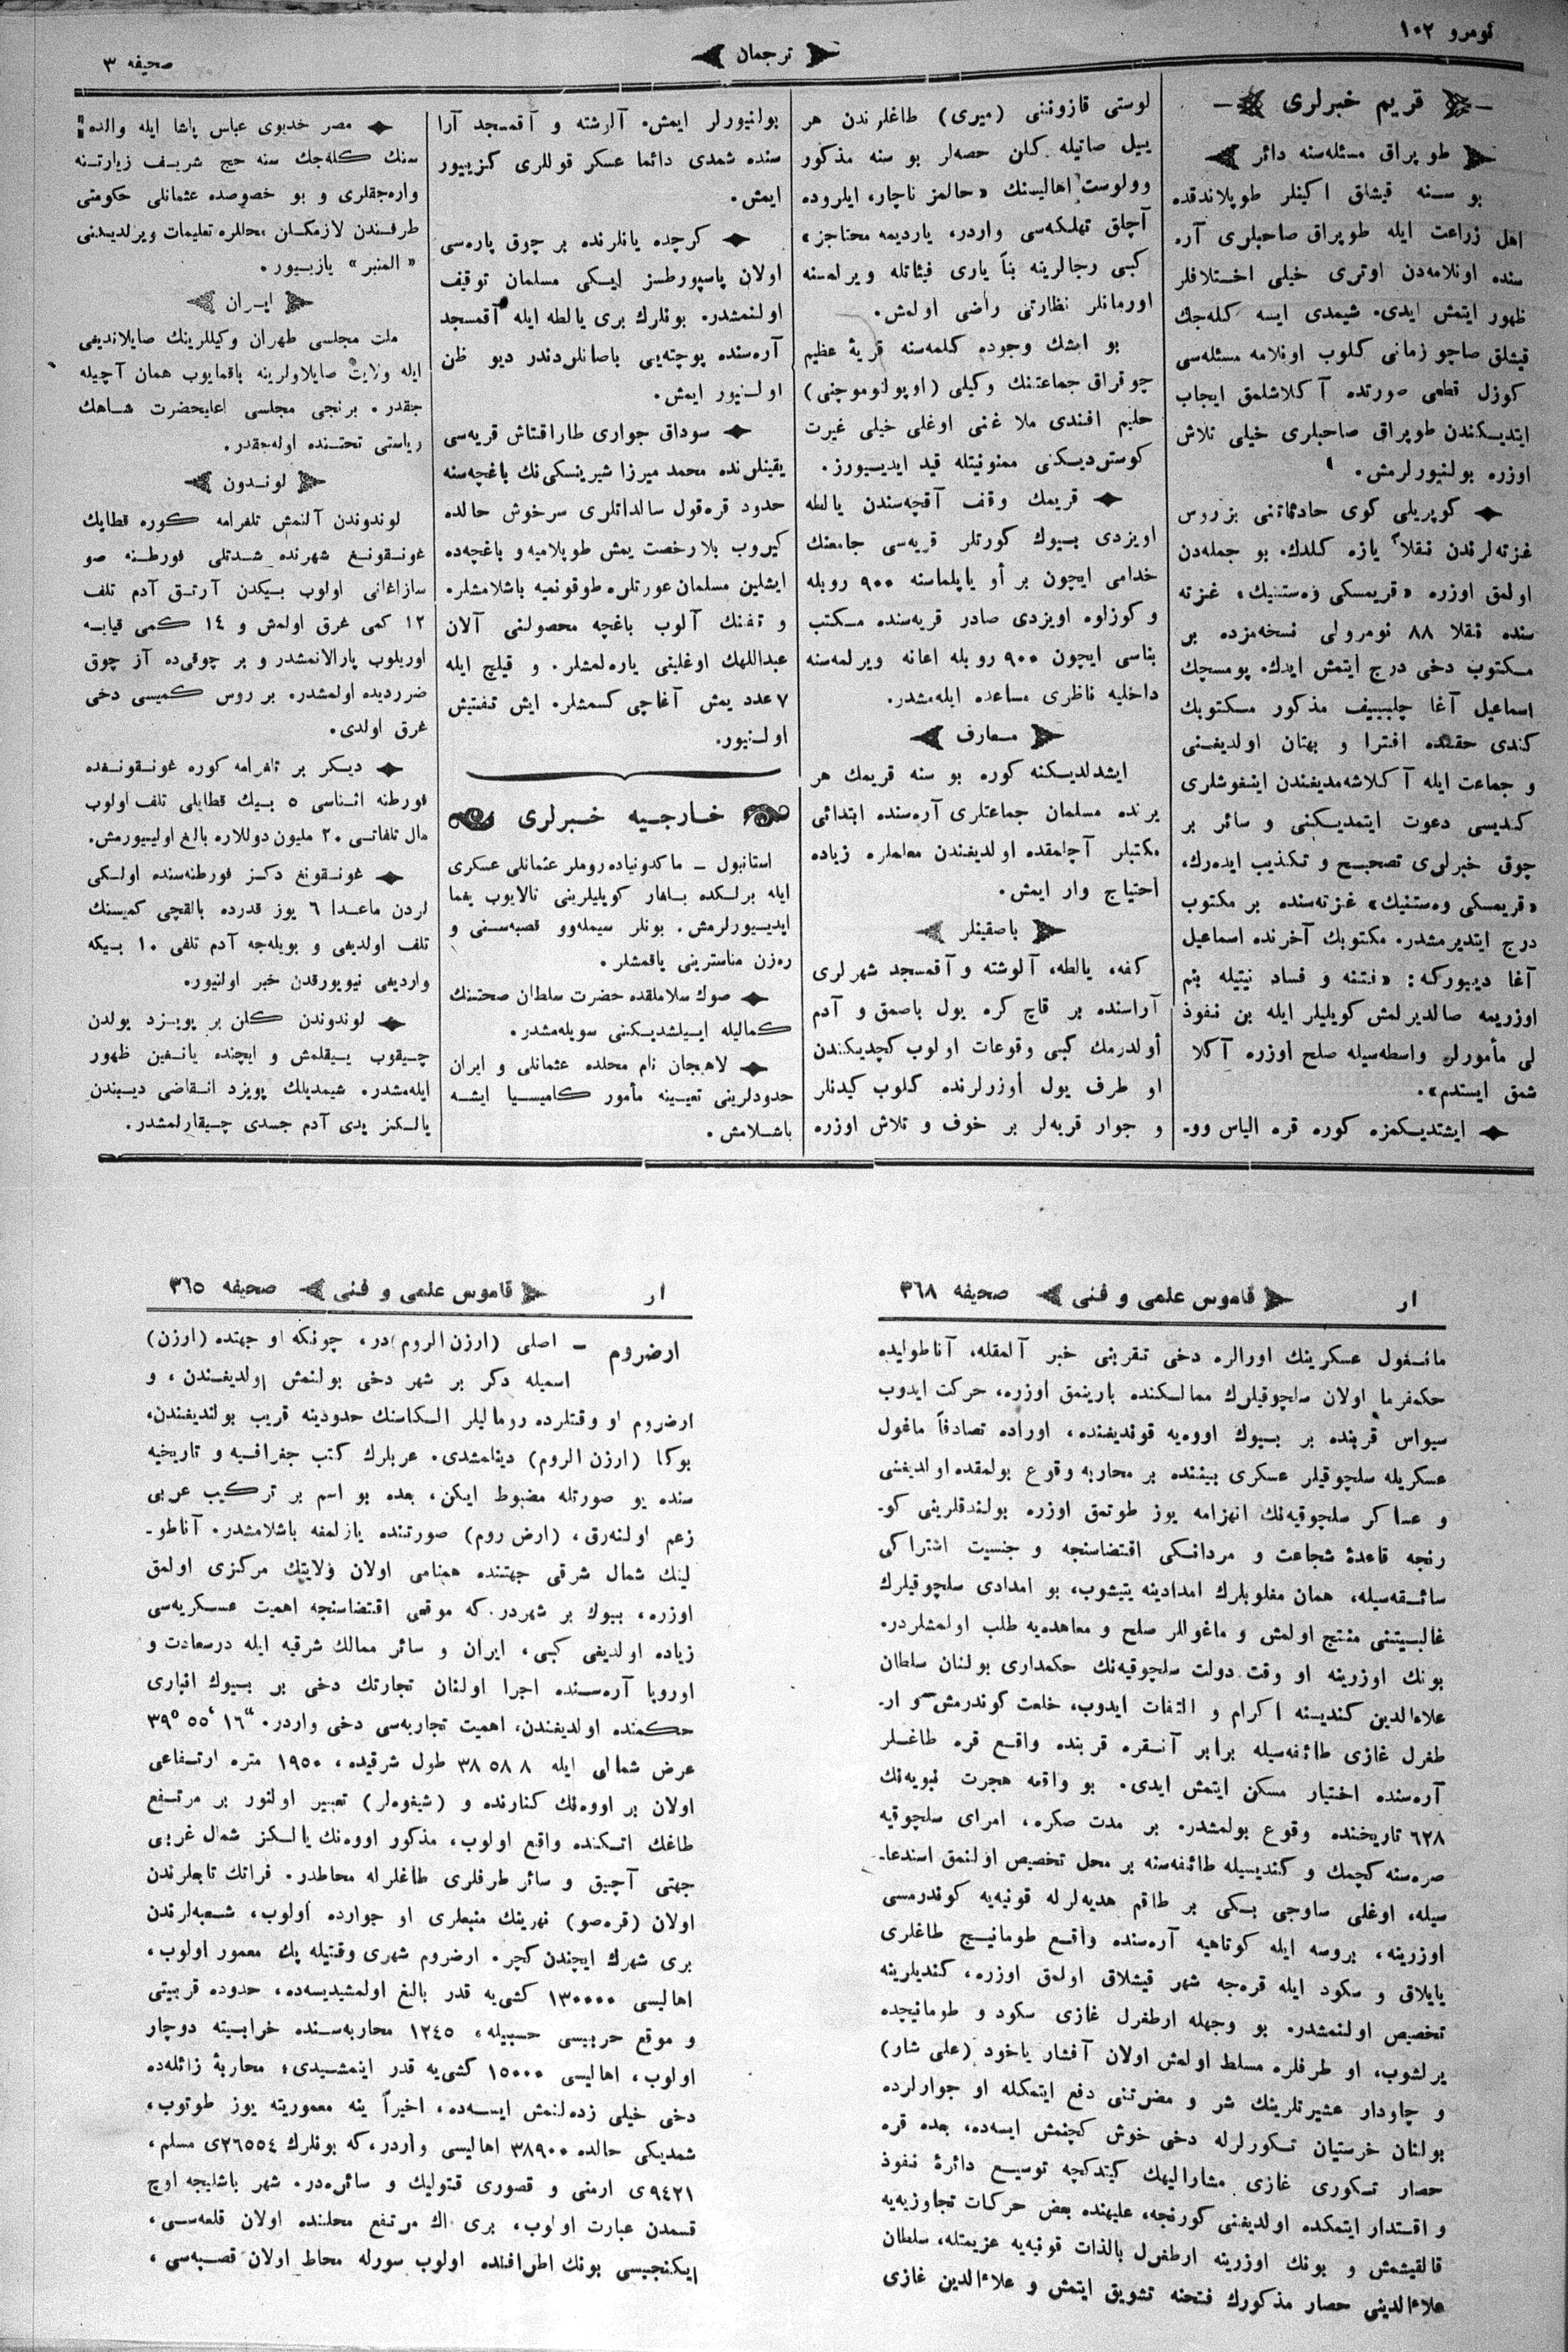 نومرو ۱۰۲
ترجمان
صحیفه ۳
قریم خبرلری
طوپراق مسئله‌سنه دائر
بو سنه قیشلق اکینلر طوپلاندقده
اهل زراعت ایله طوپراق صاحبلری آره
سنده اونلامه‌دن اوتری خیلی اختلافلر
ظهور ایتمش ایدی. شیمدی ایسه کله‌جك
قیشلق صاچو زمانی کلوب اونلامه مسئله‌سی
کوزل قطعی صورتده آکلاشلمق ایجاب
ایتدیکندن طوپراق صاحبلری خیلی تلاش
اوزره بولنیورلرمش.
کوپریلی کوی حادثاتنی بز روس
غزته‌لرندن نقلاً یازه کلدك. بو جمله‌دن
اولمق اوزره «قریمسکی وه‌ستنیك» غزته
سنده نقلا ۸۸ نومرولی نسخه‌مزده بر
مکتوب دخی درج ایتمش ایدك. پومسچك
اسماعیل آغا چلبییف مذکور مکتوبك
کندی حقنده افترا و بهتان اولدیغنی
و جماعت ایله آکلاشه‌مدیغندن اینغوشلری
کندیسی دعوت ایتمدیکنی و سائر بر
چوق خبرلری تصحیح و تکذیب ایده‌رك،
«قریمسکی وه‌ستنیك» غزته‌سنده بر مکتوب
درج ایتدیرمشدر. مکتوبك آخرنده اسماعیل
آغا دیبورکه: «فتنه و فساد نیتیله بنم
اوزریمه صالدیرلمش کویلیلر ایله بن نفوذ
لی مأمورلر واسطه‌سیله صلح اوزره آکلا
شمق ایستدم».
ایشتدیکمزه کوره قره الیاس وو-
لوستی قازوننی (میری) طاغلرندن هر
ییل صاتیله کلن حصه‌لر بو سنه مذکور
وولوست اهالیسنك «حالمز ناچار، ایلروده
آچلق تهلکه‌سی واردر، یاردیمه محتاجز»
کبی رجالرینه بناً یاری فیئاتله ویرلمسنه
اورمانلر نظارتی راضی اولمش.
بو ایشك وجوده کلمه‌سنه قریهٔ عظیم
چوقراق جماعتنك وکیلی (اوپولنوموچنی)
حلیم افندی ملا غنی اوغلی خیلی غیرت
کوستردیکنی ممنونیتله قید ایدییورز.
قریمك وقف آقچه‌سندن یالطه
اویزدی بیوك کورتلر قریه‌سی جامعنك
خدامی ایچون بر أو یاپلماسنه ۹۰۰ روبله
و کوزلوه اویزدی صادر قریه‌سنده مکتب
بناسی ایچون ۹۰۰ روبله اعانه ویرلمه‌سنه
داخلیه ناظری مساعده ایله‌مشدر.
معارف
ایشدلدیکنه کوره بو سنه قریمك هر
یرنده مسلمان جماعتلری آره‌سنده ابتدائی
مکتبلر آچلمقده اولدیغندن معلملره زیاده
احتیاج وار ایمش.
باصقینلر
کفه، یالطه، آلوشته و آقمسجد شهرلری
آراسنده بر قاچ کره یول باصمق و آدم
أولدرمك کبی وقوعات اولوب کچدیکندن
او طرف یول أوزرلرنده کلوب کیدنلر
و جوار قریه‌لر بر خوف و تلاش اوزره
بولنیورلر ایمش. آلوشته و آقمسجد آرا
سنده شمدی دائما عسکر قوللری کزییور
ایمش.
کرچده یانلرنده بر چوق پاره‌سی
اولان پاسپورطسز ایکی مسلمان توقیف
اولنمشدر. بونلرك بری یالطه ایله آقمسجد
آره‌سنده پوچته‌یی باصانلردندر دیو ظن
اولنیور ایمش.
سوداق جواری طاراقتاش قریه‌سی
یقینلرنده محمد میرزا شیرینسکی نك باغچه‌سنه
حدود قره‌قول سالداتلری سرخوش حالده
کیروب بلا رخصت یمش طوپلامیه و باغچه‌ده
ایشلین مسلمان عورتلره طوقونمیه باشلامشلر.
و تفنك آلوب باغچه محصولنی آلان
عبداللهك اوغلینی یاره‌لمشلر. و قیلیچ ایله
۷ عدد یمش آغاچی کسمشلر. ایش تفتیش
اولنیور.
خارجیه خبرلری
استانبول ــ ماکدونیاده روملر عثمانلی عسکری
ایله برلکده بلغار کویلیلرینی تالایوب یغما
ایدییورلرمش. بونلر سیمله‌وو قصبه‌سنی و
ره‌زن مناسترینی یاقمشلر.
صوك سلاملقده حضرت سلطان صحتنك
کمالیله اییلشدیکنی سویله‌مشدر.
لاهیجان نام محلده عثمانلی و ایران
حدودلرینی تعیینه مأمور کامیسیا ایشه
باشلامش.
مصر خدیوی عباس پاشا ایله والده
سنك کله‌جك سنه حج شریف زیارتنه
واره‌جقلری و بو خصوصده عثمانلی حکومتی
طرفندن لازمکلن محللره تعلیمات ویرلدیکنی
«المنبر» یازییور.
ایران
ملت مجلسی طهران وکیللرینك صایلاندیغی
ایله ولایت صایلاولرینه باقمایوب همان آچیله
جقدر. برنجی مجلسی اعلیحضرت شاهك
ریاستی تحتنده اوله‌جقدر.
لوندون
لوندوندن آلنمش تلغرامه کوره قطایك
غونقونغ شهرنده شدتلی فورطنه صو
سازاغانی اولوب بیكدن آرتق آدم تلف
۱۲ کمی غرق اولمش و ۱٤ کمی قیایه
اوریلوب پارالانمشدر و بر چوقی‌ده آز چوق
ضرردیده اولمشدر. بر روس کمیسی دخی
غرق اولدی.
دیکر بر تلغرامه کوره غونقونغده
فورطنه اثناسی ٥ بیك قطایلی تلف اولوب
مال تلفاتی ۲۰ ملیون دوللاره بالغ اولییورمش.
غونقونغ دکز فورطنه‌سنده اولکی
لردن ماعدا ٦ یوز قدرده بالقچی کمیسنك
تلف اولدیغی و بویله‌جه آدم تلفی ۱۰ بیکه
واردیغی نیویورقدن خبر اولنیور.
لوندوندن کلن بر پویزد یولدن
چیقوب ییقلمش و ایچنده یانغین ظهور
ایله‌مشدر. شیمدیلك پویزد انقاضی دیبندن
یالکز یدی آدم جسدی چیقارلمشدر.
ار
قاموس علمی و فنی
صحیفه ۳٦۸
مانغول عسکرینك اورالره دخی تقربنی خبر آلمقله، آناطولیده
حکمفرما اولان سلجوقیلرك ممالکنده بارینمق اوزره، حرکت ایدوب
سیواس قربنده بر بیوك اووه‌یه قوندیغنده، اوراده تصادفاً ماغول
عسکریله سلجوقیلر عسکری بیننده بر محاربه وقوع بولمقده اولدیغنی
و عساکر سلجوقیه‌نك انهزامه یوز طوتمق اوزره بولندقلرینی کو-
رنجه قاعدهٔ شجاعت و مردانکی اقتضاسنجه و جنسیت اشتراکی
سائقه‌سیله، همان مغلوبلرك امدادینه یتیشوب، بو امدادی سلجوقیلرك
غالبیتنی منتج اولمش و ماغوللر صلح و معاهده‌یه طلب اولمشلردر.
بونك اوزرینه او وقت دولت سلجوقیه‌نك حکمداری بولنان سلطان
علاءالدین کندیسنه اکرام و التفات ایدوب، خلعت کوندرمش و ار-
طغرل غازی طائفه‌سیله برابر آنقره قربنده واقع قره طاغلر
آره‌سنده اختیار مسکن ایتمش ایدی. بو واقعه هجرت نبویه‌نك
٦۲۸ تاریخنده وقوع بولمشدر. بر مدت صکره، امرای سلجوقیه
صره‌سنه کچمك و کندیسیله طائفه‌سنه بر محل تخصیص اولنمق استدعا-
سیله، اوغلی ساوجی بکی بر طاقم هدیه‌لرله قونیه‌یه کوندرمسی
اوزرینه، بروسه ایله کوتاهیه آره‌سنده واقع طومانیچ طاغلری
یایلاق و سکود ایله قره‌جه شهر قیشلاق اولمق اوزره، کندیلرینه
تخصیص اولنمشدر. بو وجهله ارطغرل غازی سکود و طومانیجده
یرلشوب، او طرفلره مسلط اولمش اولان آفشار یاخود (علی شار)
و چاودار عشیرتلرینك شر و مضرتنی دفع ایتمکله او جوارلرده
بولنان خرستیان تکورلرله دخی خوش کچنمش ایسه‌ده، بعده قره
حصار تکوری غازی مشارالیهك کیتدکچه توسیع دائرهٔ نفوذ
و اقتدار ایتمکده اولدیغنی کورنجه، علیهنده بعض حرکات تجاوزیه‌یه
قالقیشمش و بونك اوزرینه ارطغرل بالذات قونیه‌یه عزیمتله، سلطان
علاءالدینی حصار مذکورك فتحنه تشویق ایتمش و علاءالدین غازی
ار
قاموس علمی و فنی
صحیفه ۳٦٥
ارضروم ــ اصلی (ارزن الروم) در، چونکه او جهتده (ارزن)
اسمیله دکر بر شهر دخی بولنمش اولدیغندن، و
ارضروم او وقتلرده رومالیلر الکاسنك حدودینه قریب بولندیغندن،
بوکا (ارزن الروم) دینلمشدی. عربلرك کتب جغرافیه و تاریخیه
سنده بو صورتله مضبوط ایکن، بعده بو اسم بر ترکیب عربی
زعم اولنه‌رق، (ارض روم) صورتنده یازلمغه باشلامشدر. آناطو-
لینك شمال شرقی جهتنده همنامی اولان ولایتك مرکزی اولمق
اوزره، بیوك بر شهردر. که موقعی اقتضاسنجه اهمیت عسکریه‌سی
زیاده اولدیغی کبی، ایران و سائر ممالك شرقیه ایله درسعادت و
اوروپا آره‌سنده اجرا اولنان تجارتك دخی بر بیوك انباری
حکمنده اولدیغندن، اهمیت تجاریه‌سی دخی واردر. ۱٦ ٥٥ ۳۹
عرض شمالی ایله ۸ ٥۸ ۳۸ طول شرقیده، ۱۹٥۰ متره ارتفاعی
اولان بر اووه‌نك کنارنده و (شیغوه‌لر) تعبیر اولنور بر مرتفع
طاغك اتکنده واقع اولوب، مذکور اووه‌نك یالکز شمال غربی
جهتی آچیق و سائر طرفلری طاغلرله محاطدر. فراتك تابعلرندن
اولان (قره‌صو) نهرینك منبعلری او جوارده أولوب، شعبه‌لرندن
بری شهرك ایچندن کچر. ارضروم شهری وقتیله پك معمور اولوب،
اهالیسی ۱۳۰۰۰۰ کشی‌یه قدر بالغ اولمشیدیسه‌ده، حدوده قربیتی
و موقع حربیسی حسبیله، ۱۲٤٥ محاربه‌سنده خرابیته دوچار
اولوب، اهالیسی ۱٥۰۰۰ کشی‌یه قدر اینمشیدی؛ محاربهٔ زائله‌ده
دخی خیلی زده‌لنمش ایسه‌ده، اخیراً ینه معموریته یوز طوتوب،
شمدیکی حالده ۳۸۹۰۰ اهالیسی واردر، که بونلرك ۲٦٥٥٤ی مسلم،
۹٤۲۱ی ارمنی و قصوری قتولیك و سائره‌در. شهر باشلیجه اوچ
قسمدن عبارت اولوب، بری اك مرتفع محلنده اولان قلعه‌سی،
ایکنجیسی بونك اطرافنده اولوب سورله محاط اولان قصبه‌سی،